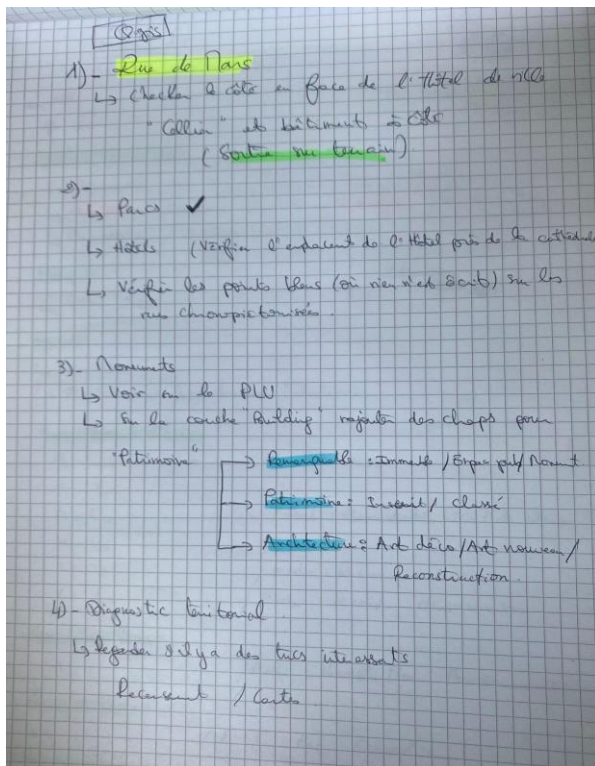 Qgis
1)- Rue de Mars
↳ Checker le côté en face de l'Hôtel de ville
" et bâtiments à côté
(Sortie sur terrain)
2)-
↳ Parcs ✓
↳ Hôtels (Vérifier l'emplacent de l'Hôtel près de la cathédrale
↳ Vérifier les points bleus (où rien n'est écrit) sur les
rues
3)- Monuments
↳ Voir sur le PLU
↳ Sur la couche "Building" rajouter des champs pour
"Patrimoine"
→ Remarquable : Immeuble / Espace pub / Monument
→ Patrimoine : Inscrit / classé
→ Architecture : Art déco / Art nouveau /
Reconstruction.
4)- Diagnostic territorial
↳ Regarder s'il y a des trucs intéressants
/ Cartes